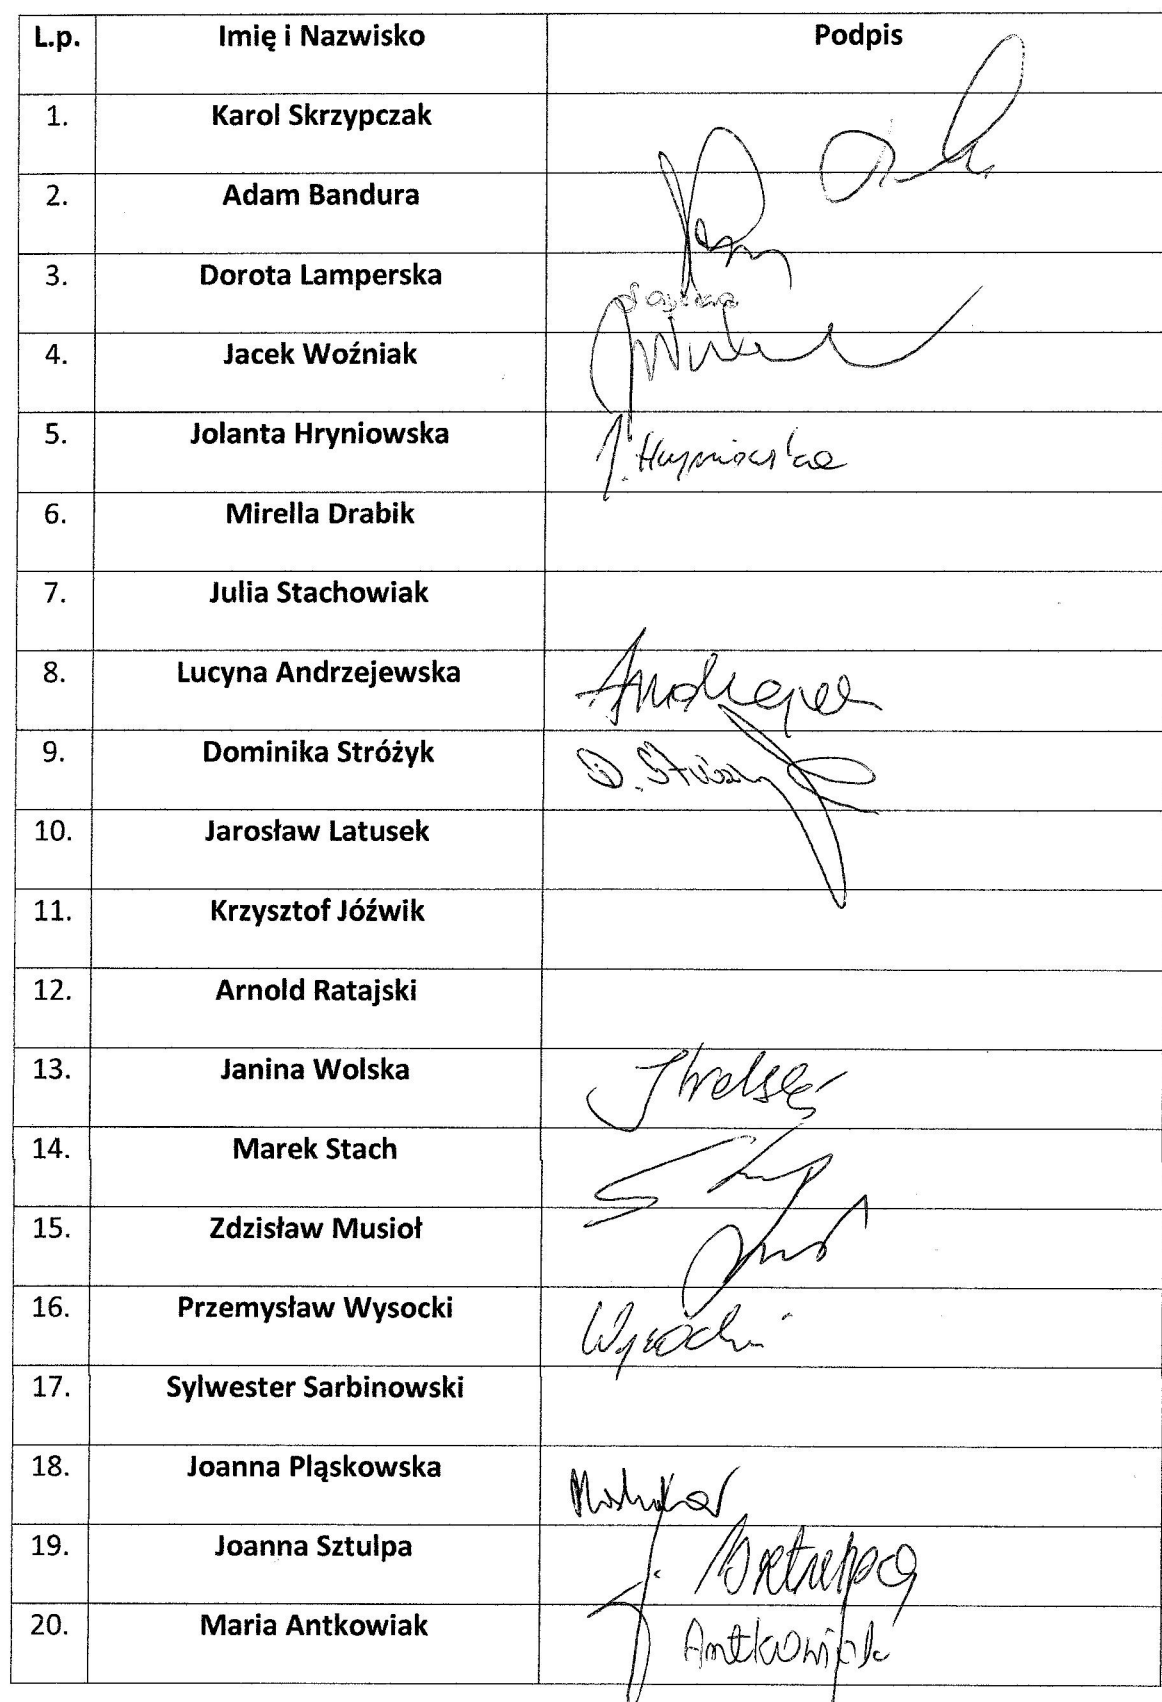 L.p. Imię i Nazwisko Podpis
1. Karol Skrzypczak
2. Adam Bandura
3. Dorota Lamperska
4. Jacek Woźniak
5. Jolanta Hryniowska J. Hryniowska
6. Mirella Drabik
7. Julia Stachowiak
8. Lucyna Andrzejewska
9. Dominika Stróżyk D.
10. Jarosław Latusek
11. Krzysztof Jóźwik
12. Arnold Ratajski
13. Janina Wolska
14. Marek Stach
15. Zdzisław Musioł
16. Przemysław Wysocki Wysocki
17. Sylwester Sarbinowski
18. Joanna Pląskowska
19. Joanna Sztulpa
20. Maria Antkowiak Antkowiak